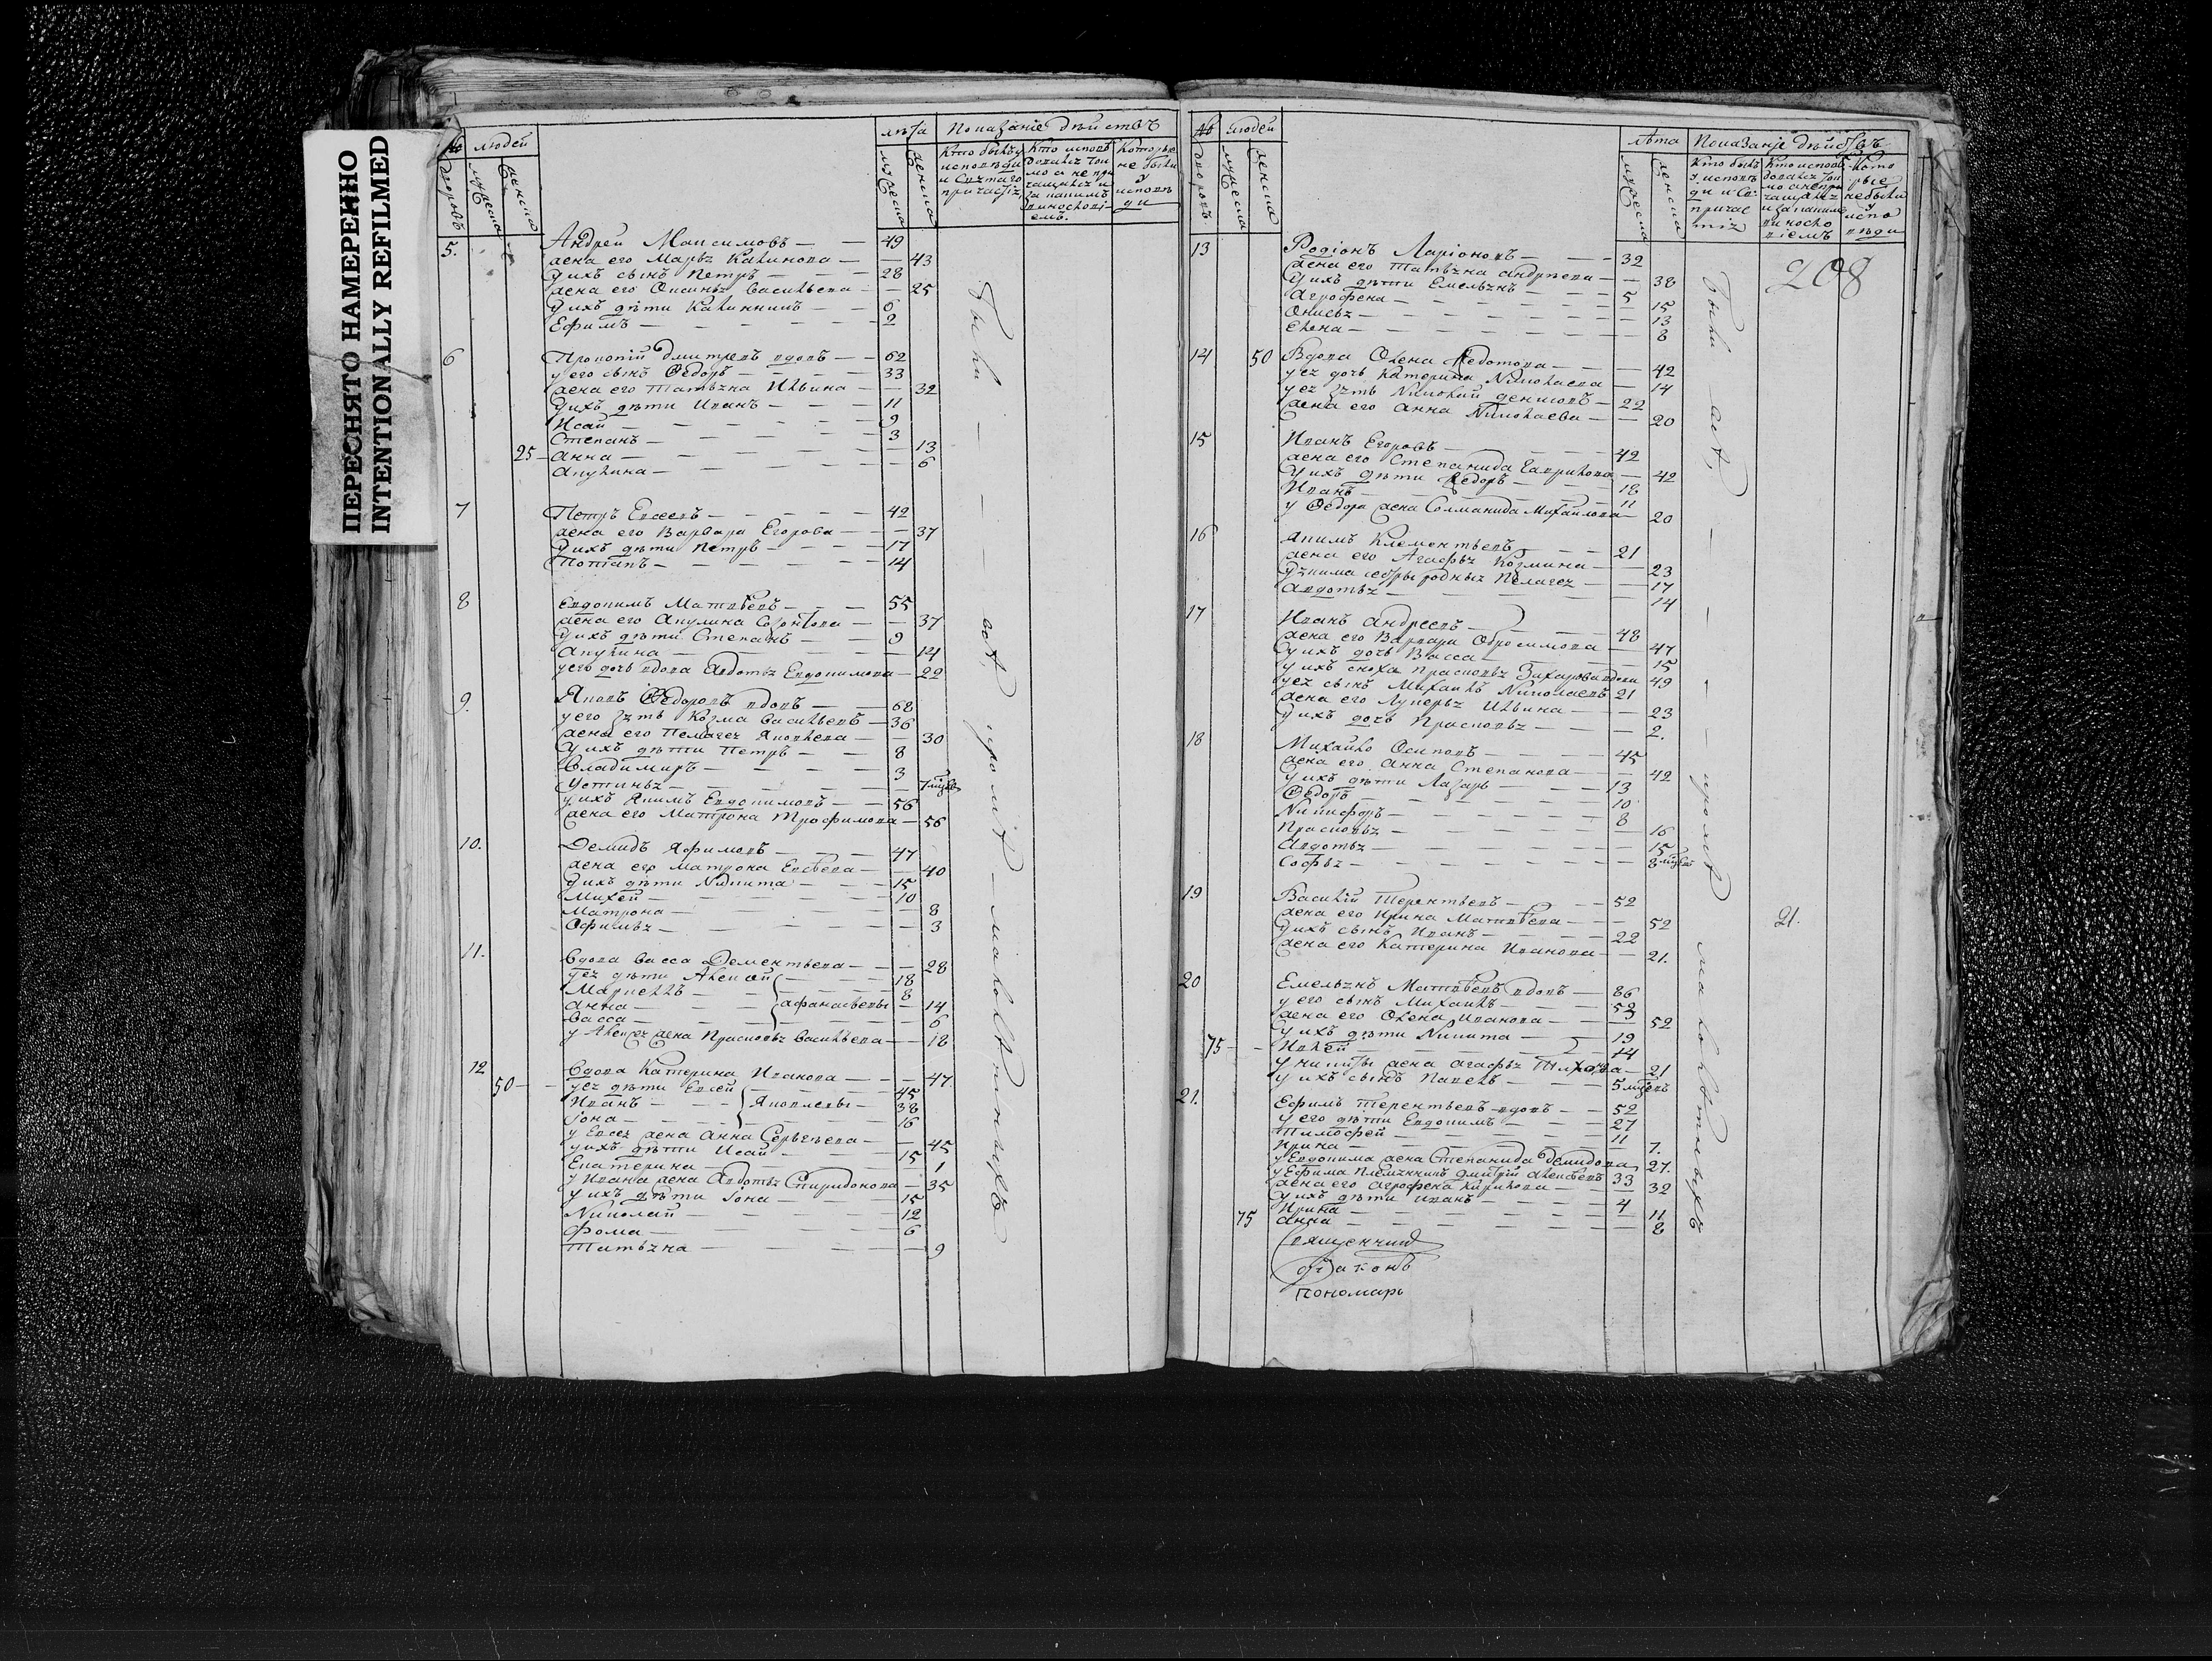 ПЕРЕСНЯТО НАМЕРЕННО
INTENTIONALLY REFILMED
№ дворовъ
людей
мужеска
женска
лѣта
мужеска
женска
Показаніе дѣйствъ
5. Андрей Максимовъ — 49
жена его Марья Калинова — 43
у ихъ сынъ Петръ — 28
жена его Аксинья Васильева — 25
у ихъ дѣти Калинникъ — 6
Ефимъ — 2
6 Прокопій Дмитревъ вдовъ — 62
у его сынъ Ѳедоръ — 33
жена его Татьяна Ильина — 32
у ихъ дѣти Иванъ — 11
Исай — 9
Степанъ — 3
25 Анна — 13
Акулина — 6
7 Петръ Евсеевъ — 42
жена его Варвара Егорова — 37
у ихъ дѣти Петръ — 17
Потапъ — 14
8 Евдокимъ Матвѣевъ — 55
жена его Акулина — 37
у ихъ дѣти Степанъ — 9
Акулина — 14
у его дочь вдова Авдотья Евдокимова — 22
9. Яковъ Ѳедоровъ вдовъ — 68
у его зять Козма Васильевъ — 36
жена его Пелагея Яковлева — 30
у ихъ дѣти Петръ — 8
Владимиръ — 3
Устинья — 7
у ихъ Якимъ Евдокимовъ — 56
жена его Матрона Трофимова — 56
10. Демидъ Яфимовъ — 47
жена его Матрона Евсѣева — 40
у ихъ дѣти Никита — 15
Михей — 10
Матрона — 8
Офимья — 3
11. Вдова Васса Дементьева — 28
у ея дѣти Алексѣй — 18
Маркеллъ — 8
Анна — Афанасьевы — 14
Васса — 6
у Алексея жена Прасковья Васильева — 18
12 Вдова Катерина Иванова — 47.
50 у ея дѣти Евсей — 45
Иванъ — Яковлевы — 38
Іона — 16
у Евсея жена Анна Сергѣева — 45
у ихъ дѣти Исай — 15
Екатерина — 1
у Ивана жена Авдотья Спиридонова — 35
у ихъ дѣти Іона — 15
Николай — 12
Фома — 6
Татьяна — 9
Были — всѣ, кромѣ — малолѣтнихъ
№ дворовъ
людей
мужеска
женска
лѣта
мужеска
женска
Показаніе дѣйствъ
208
13 Родіонъ Ларіоновъ — 32
жена его Татьяна Андреева — 38
у ихъ дѣти Емельянъ — 5
Агрофена — 15
Онисья — 13
Елена — 8
14 50 Вдова Олена Ѳедотова — 42
у ея дочь Катерина Николаева — 14
у ея зять Николай Денисовъ — 22
жена его Анна Николаева — 20
15 Иванъ Егоровъ — 42
жена его Степанида Гаврилова — 42
у ихъ дѣти Ѳедоръ — 18
Иванъ — 11
у Ѳедора жена Соломанида Михайлова — 20
16 Якимъ Клементьевъ — 21
жена его Агафья Козмина — 23
у Якима сестры родныя Пелагея — 17
Авдотья — 14
17 Иванъ Андреевъ — 48
жена его Варвара Обросимова — 47
у ихъ дочь Васса — 15
у ихъ сноха Прасковья Захарова вдова 49
у ея сынъ Михаилъ Николаевъ 21
жена его Лукерья Ильина — 23
у ихъ дочь Прасковья — 2.
18 Михайло Осиповъ — 45
жена его Анна Степанова — 42
у ихъ дѣти Лазарь — 13
Ѳедоръ — 10
Никифоръ — 8
Прасковья — 16
Авдотья — 15
Софья — 8
19 Василій Терентьевъ — 52
жена его Ирина Матвѣева — 52
у ихъ сынъ Иванъ — 22
жена его Катерина Иванова — 21.
21.
20 Емельянъ Матвѣевъ вдовъ — 86
у его сынъ Михаилъ — 53
жена его Олена Иванова — 52
у ихъ дѣти Никита — 19
75 — 14
у Никиты жена Агафья — 21
у ихъ сынъ Павелъ — 5
21. Ефимъ Терентьевъ вдовъ — 52
у его дѣти Евдокимъ — 27
Тимофей — 11
Ирина — 7.
у Евдокима жена Степанида Демидова 27.
у Ефима племянникъ Дмитрій Алексѣевъ 33
жена его Агрофена Кирилова — 32
у ихъ дѣти Иванъ — 4
Ирина — 11
75 Анна — 8
Были всѣ, — кромѣ малолѣтныхъ
Священникъ
Діаконъ
Пономарь